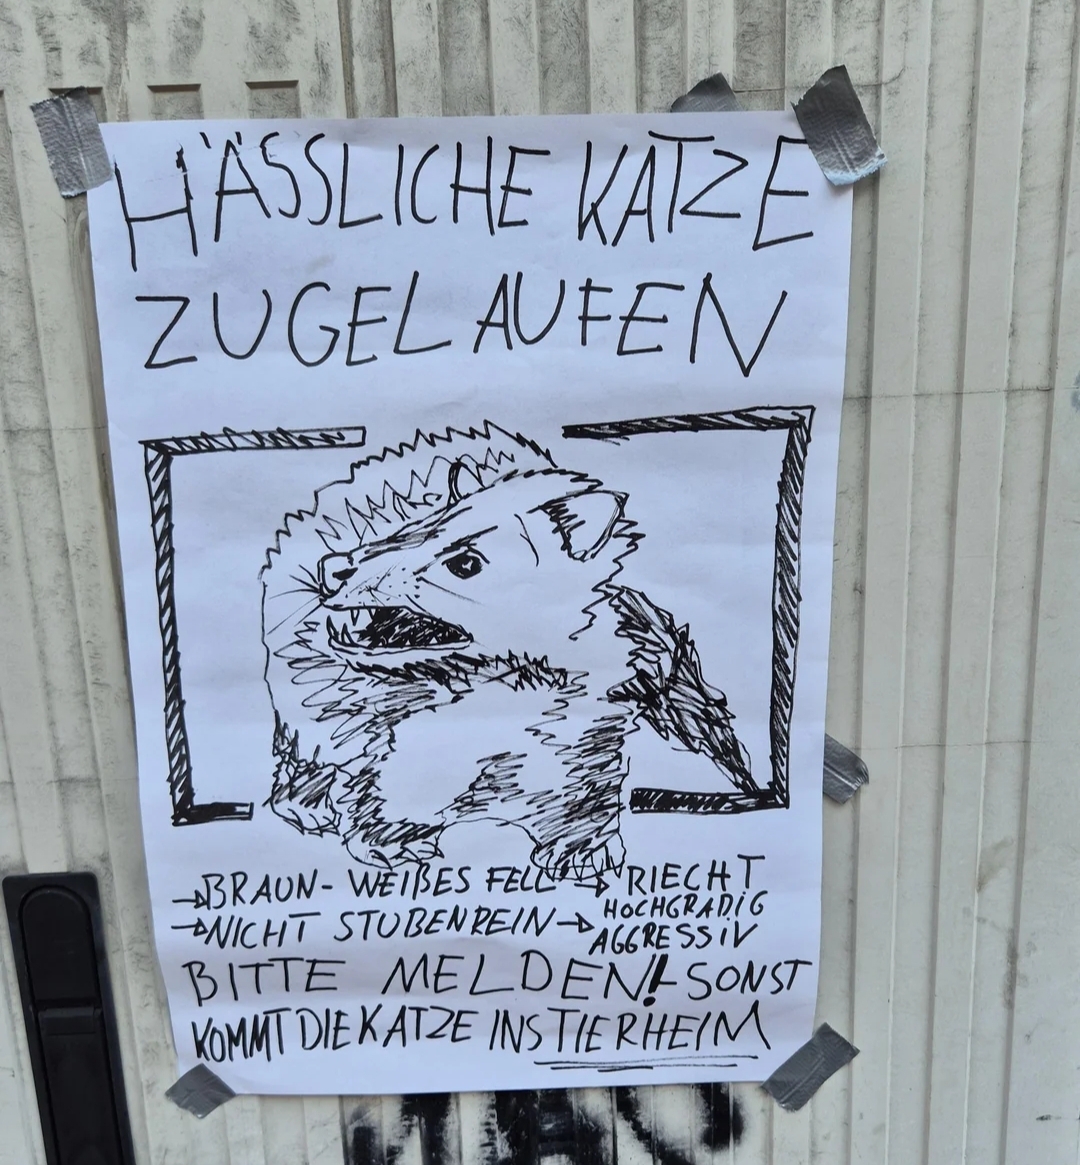 HÄSSLICHE KATZE
ZUGELAUFEN
→BRAUN-WEIßES FELL → RIECHT
→NICHT STUBENREIN → HOCHGRADIG
AGGRESSIV
BITTE MELDEN! SONST
KOMMT DIE KATZE INS TIERHEIM